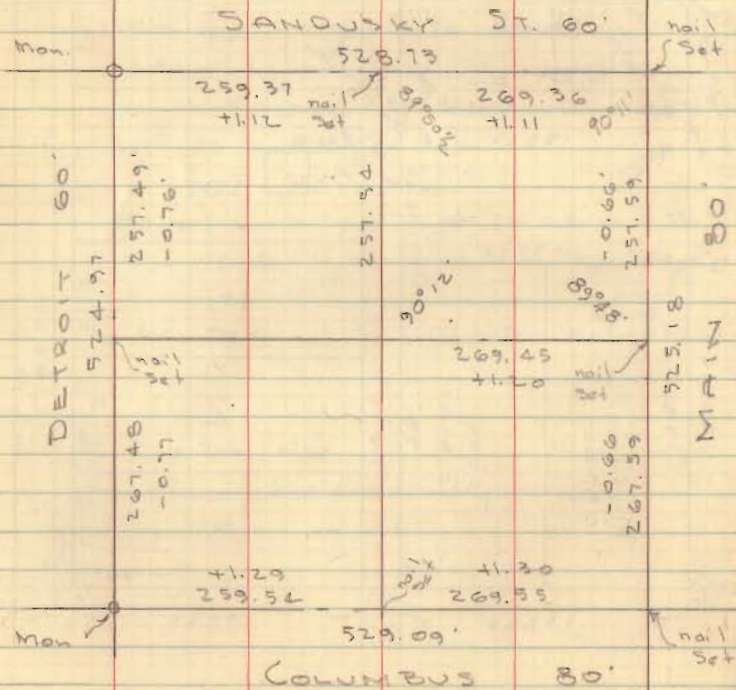 SANDUSKY ST. 60'
528.73
Mon.
nail
Set
259.37
+1.12
nail
Set
269.36
+1.11
89°50½
90°11'
DETROIT 60'
524.97
257.49'
-0.76'
257.54
-0.66'
257.59
MAIN 80'
525.18
90°12'
89°48'
nail
Set
269.45
+1.20
nail
Set
267.48
-0.77
-0.66
267.59
+1.29
259.54
nail
Set
+1.30
269.55
Mon
529.09'
nail
Set
COLUMBUS 80'